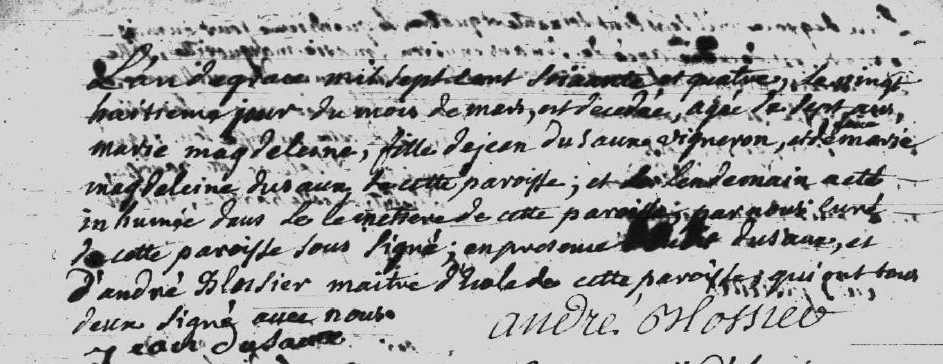 L'an de grace mil sept cent soixante et quatre, le vingt
huitieme jour du mois de mars, est decedée, agée de sept ans,
marie magdeleine, fille de jean dusaux vigneron, et de marie
magdeleine dusaux de cette paroisse; et le lendemain a eté
inhumée dans le cemettiere de cette paroisse, par nous curé
de cette paroisse sous signé; en presence dusaux, et
d'andré Blossier maitre d'Ecole de cette paroisse, qui ont tous
deux signé avec nous.
Jean dusaux andré Blossier